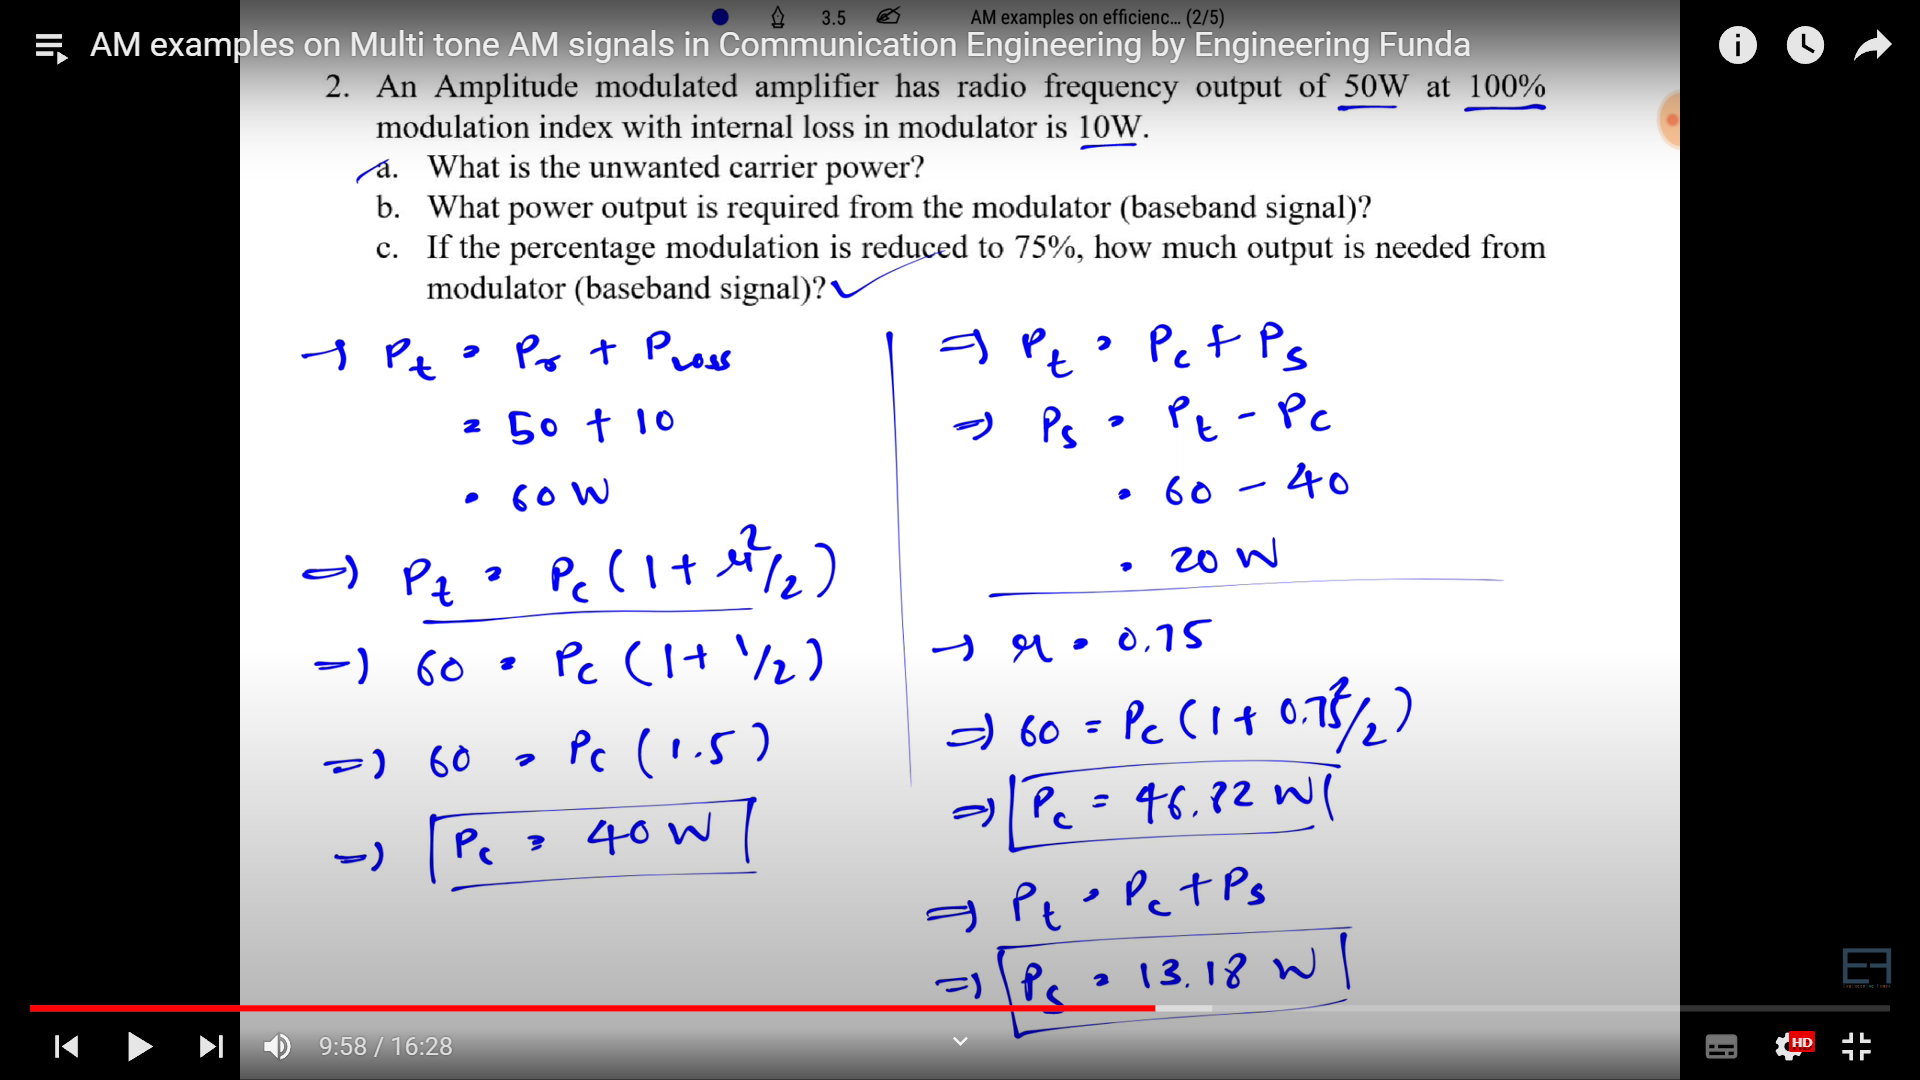 3.5 AM examples on efficienc... (2/5)
AM examples on Multi tone AM signals in Communication Engineering by Engineering Funda
2. An Amplitude modulated amplifier has radio frequency output of 50W at 100%
modulation index with internal loss in modulator is 10W.
a. What is the unwanted carrier power?
b. What power output is required from the modulator (baseband signal)?
c. If the percentage modulation is reduced to 75%, how much output is needed from
modulator (baseband signal)?
→ Pt = Pr + PLoss
= 50 + 10
= 60 W
⇒ Pt = Pc (1 + μ²/2)
⇒ 60 = Pc (1 + 1/2)
⇒ 60 = Pc (1.5)
⇒ Pc = 40 W
⇒ Pt = Pc + Ps
⇒ Ps = Pt - Pc
= 60 - 40
= 20 W
→ μ = 0.75
⇒ 60 = Pc (1 + 0.75²/2)
⇒ Pc = 46.82 W
⇒ Pt = Pc + Ps
⇒ Ps = 13.18 W
9:58 / 16:28
HD